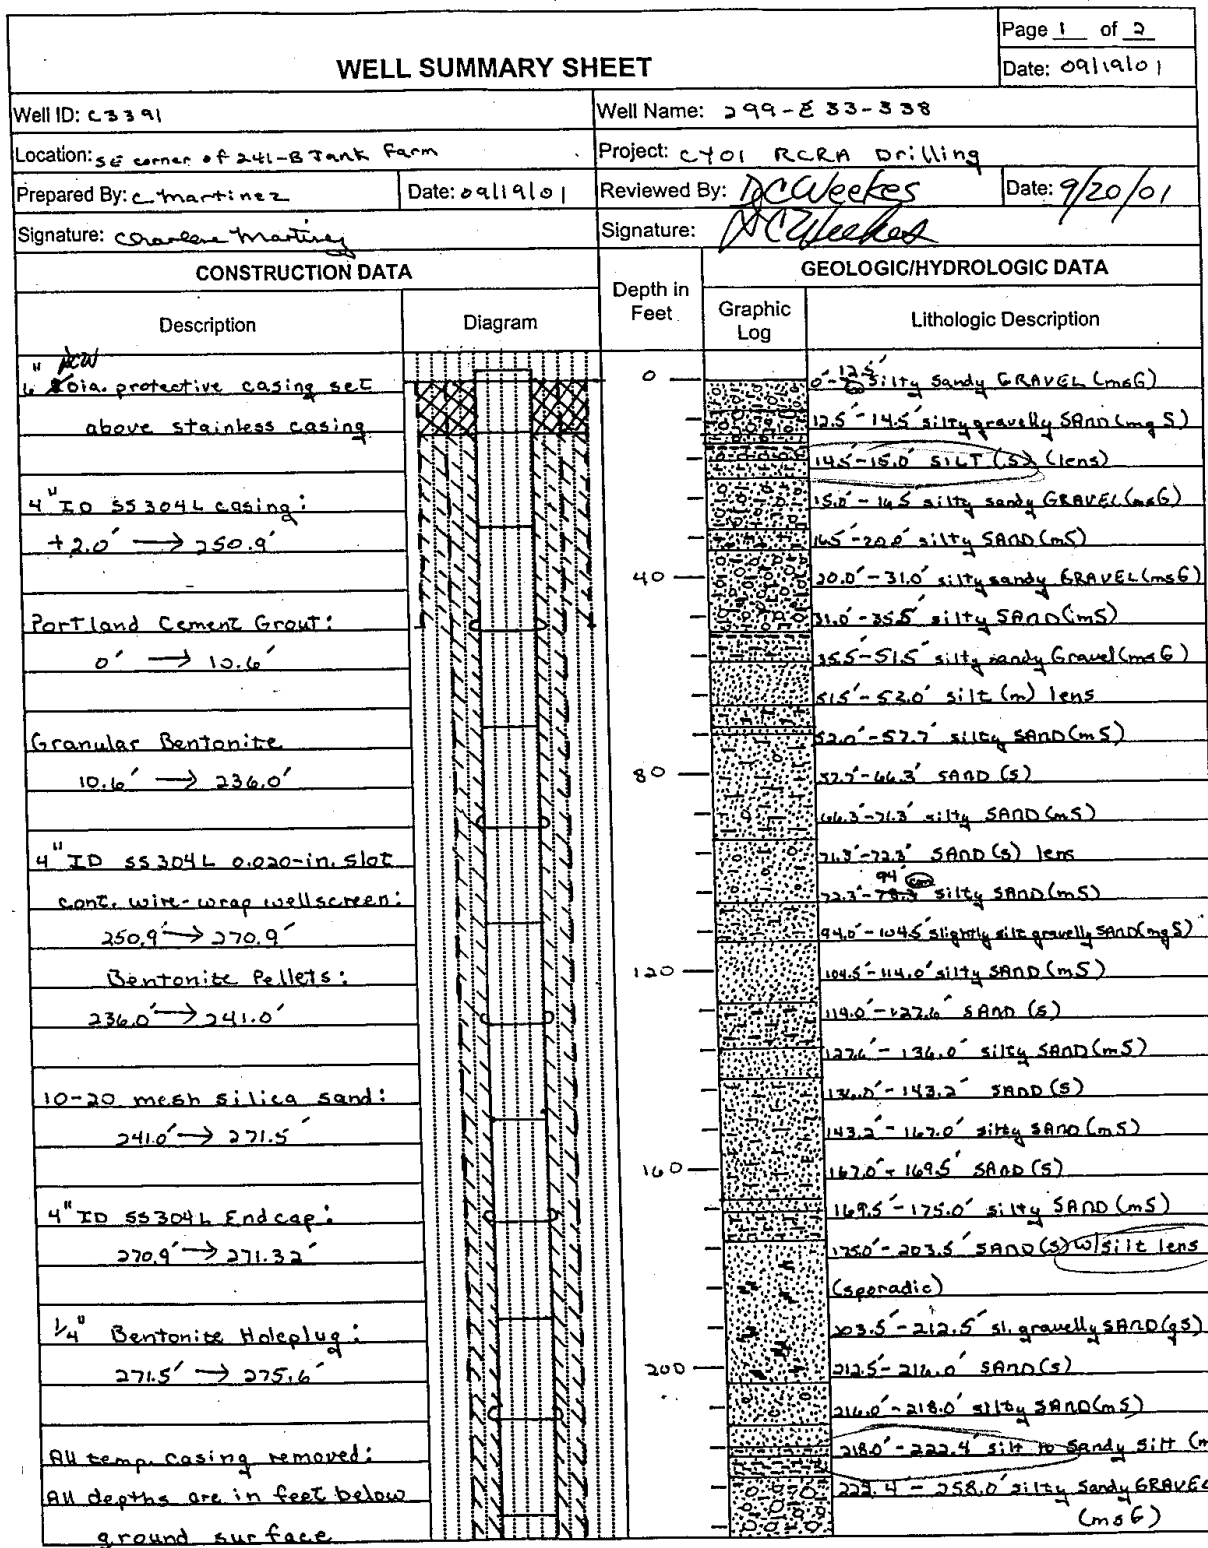 Page 1 of 2
WELL SUMMARY SHEET
Date: 09/19/01
Well ID: C3391
Well Name: 299-E33-338
Location: SE corner of 241-B Tank Farm
Project: CY01 RCRA Drilling
Prepared By: C. Martinez
Date: 09/19/01
Reviewed By: DCWeekes
Date: 9/20/01
Signature: Charlene Martinez
Signature: DCWeekes
CONSTRUCTION DATA
GEOLOGIC/HYDROLOGIC DATA
Description
Diagram
Depth in Feet
Graphic Log
Lithologic Description
DCW
6" dia. protective casing set
above stainless casing
4" ID SS304L casing:
+2.0' → 250.9'
Portland Cement Grout:
0' → 10.6'
Granular Bentonite
10.6' → 236.0'
4" ID SS304L 0.020-in. slot
cont. wire-wrap wellscreen:
250.9' → 270.9'
Bentonite Pellets:
236.0' → 241.0'
10-20 mesh silica sand:
241.0' → 271.5'
4" ID SS304L Endcap:
270.9' → 271.32'
1/4" Bentonite Holeplug:
271.5' → 275.6'
All temp. casing removed:
All depths are in feet below
ground surface
0
40
80
120
160
200
0'-12.5' silty sandy GRAVEL (msG)
12.5'-14.5' silty gravelly SAND (mgS)
14.5'-15.0' SILT (S) (lens)
15.0'-16.5 silty sandy GRAVEL (msG)
16.5'-20.0' silty SAND (mS)
20.0'-31.0' silty sandy GRAVEL (msG)
31.0'-35.5' silty SAND (mS)
35.5'-51.5' silty sandy Gravel (msG)
51.5'-52.0' silt (m) lens
52.0'-57.7' silty SAND (mS)
57.7'-66.3' SAND (S)
66.3'-71.3' silty SAND (mS)
71.3'-72.3' SAND (S) lens
94' cm
72.3'-78.3' silty SAND (mS)
94.0'-104.5' slightly silt gravelly SAND (mgS)
104.5'-114.0' silty SAND (mS)
119.0'-127.6' SAND (S)
127.6'-136.0' silty SAND (mS)
136.0'-143.2' SAND (S)
143.2'-167.0' silty SAND (mS)
167.0'-169.5' SAND (S)
169.5'-175.0' silty SAND (mS)
175.0'-203.5' SAND (S) w/silt lens
(sporadic)
203.5'-212.5' sl. gravelly SAND (gS)
212.5'-216.0' SAND (S)
216.0'-218.0' silty SAND (mS)
218.0'-222.4' silt to sandy silt (m
222.4'-258.0' silty sandy GRAVEL
(msG)